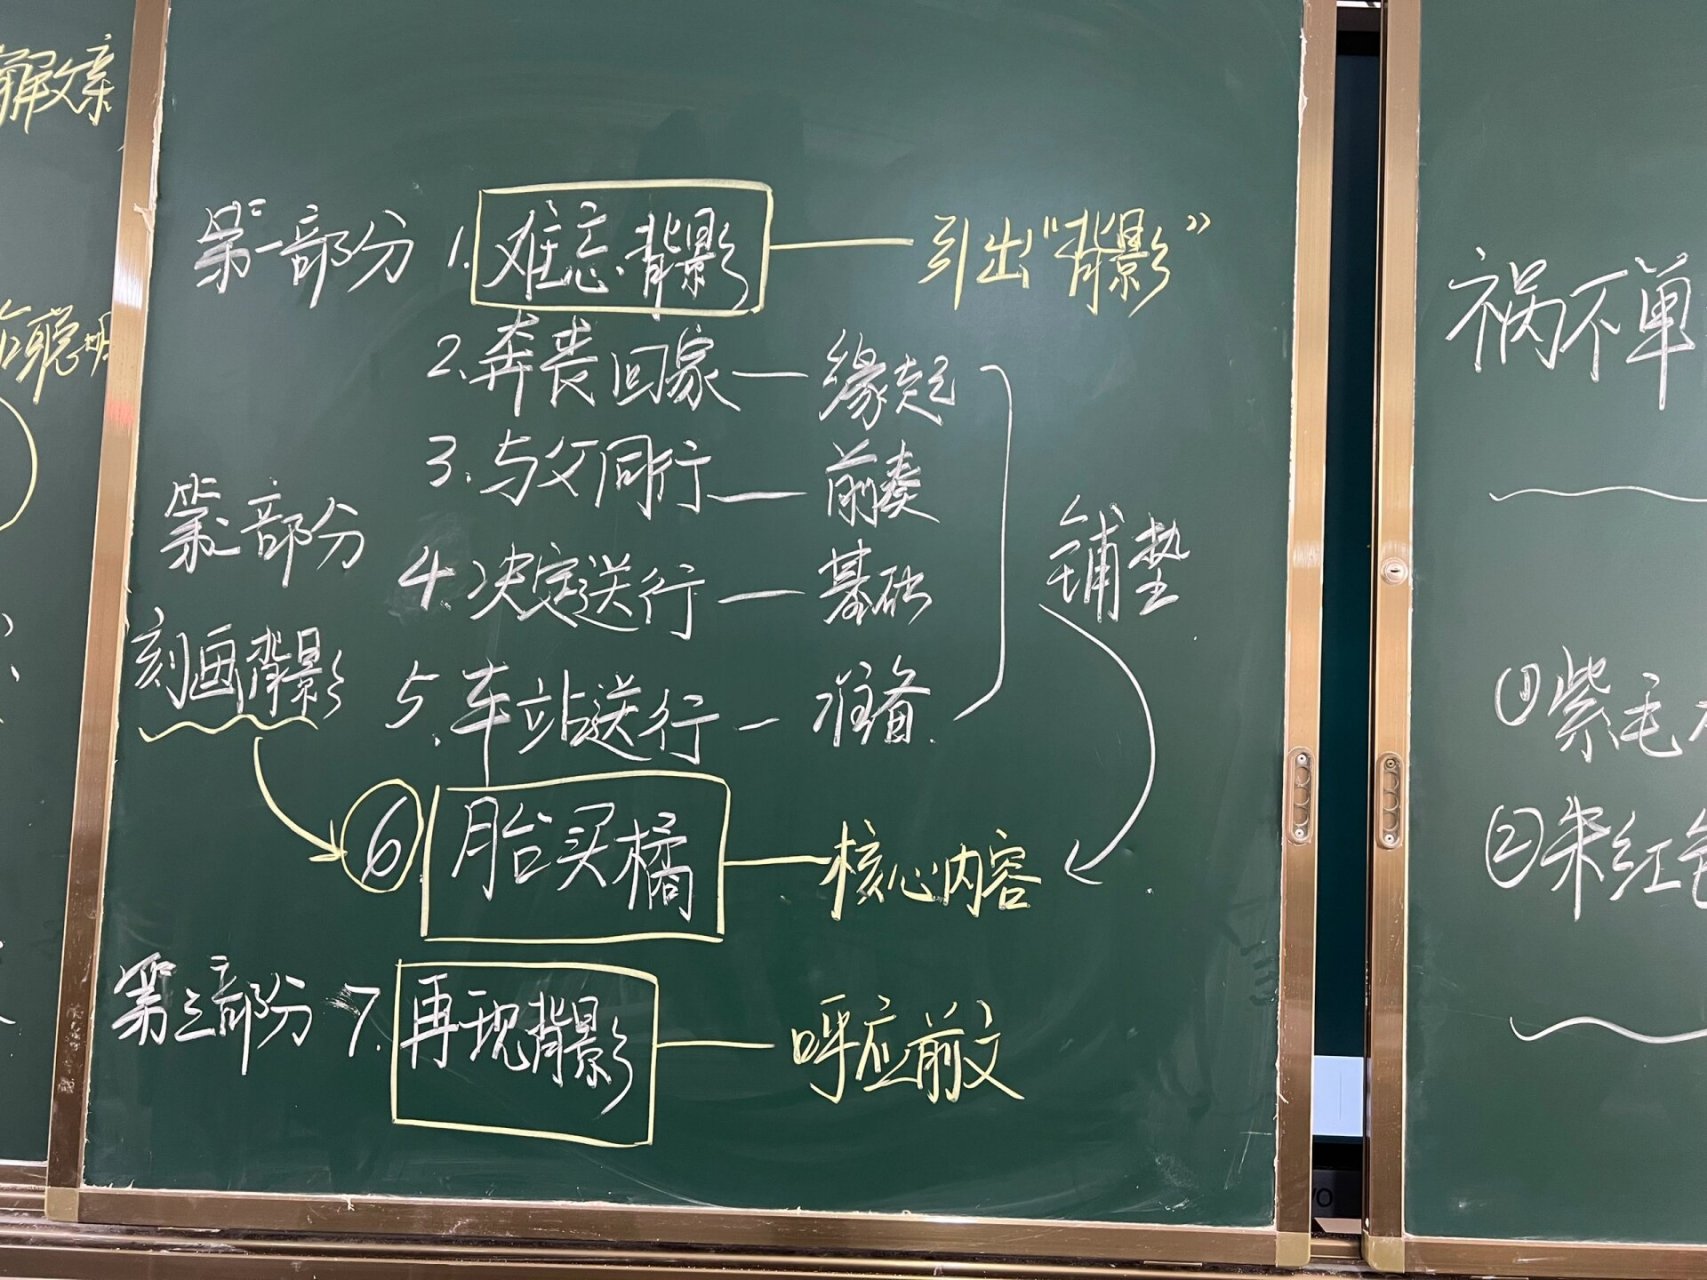 解文亲
聪明
第一部分 1. 难忘背影 — 引出“背影”
2. 奔丧回家 — 缘起
3. 与父同行 — 前奏
第二部分
4. 决定送行 — 基础
铺垫
刻画背影
5. 车站送行 - 准备
⑥ 月台买橘 — 核心内容
第三部分 7. 再现背影 — 呼应前文
祸不单
①紫毛
②朱红